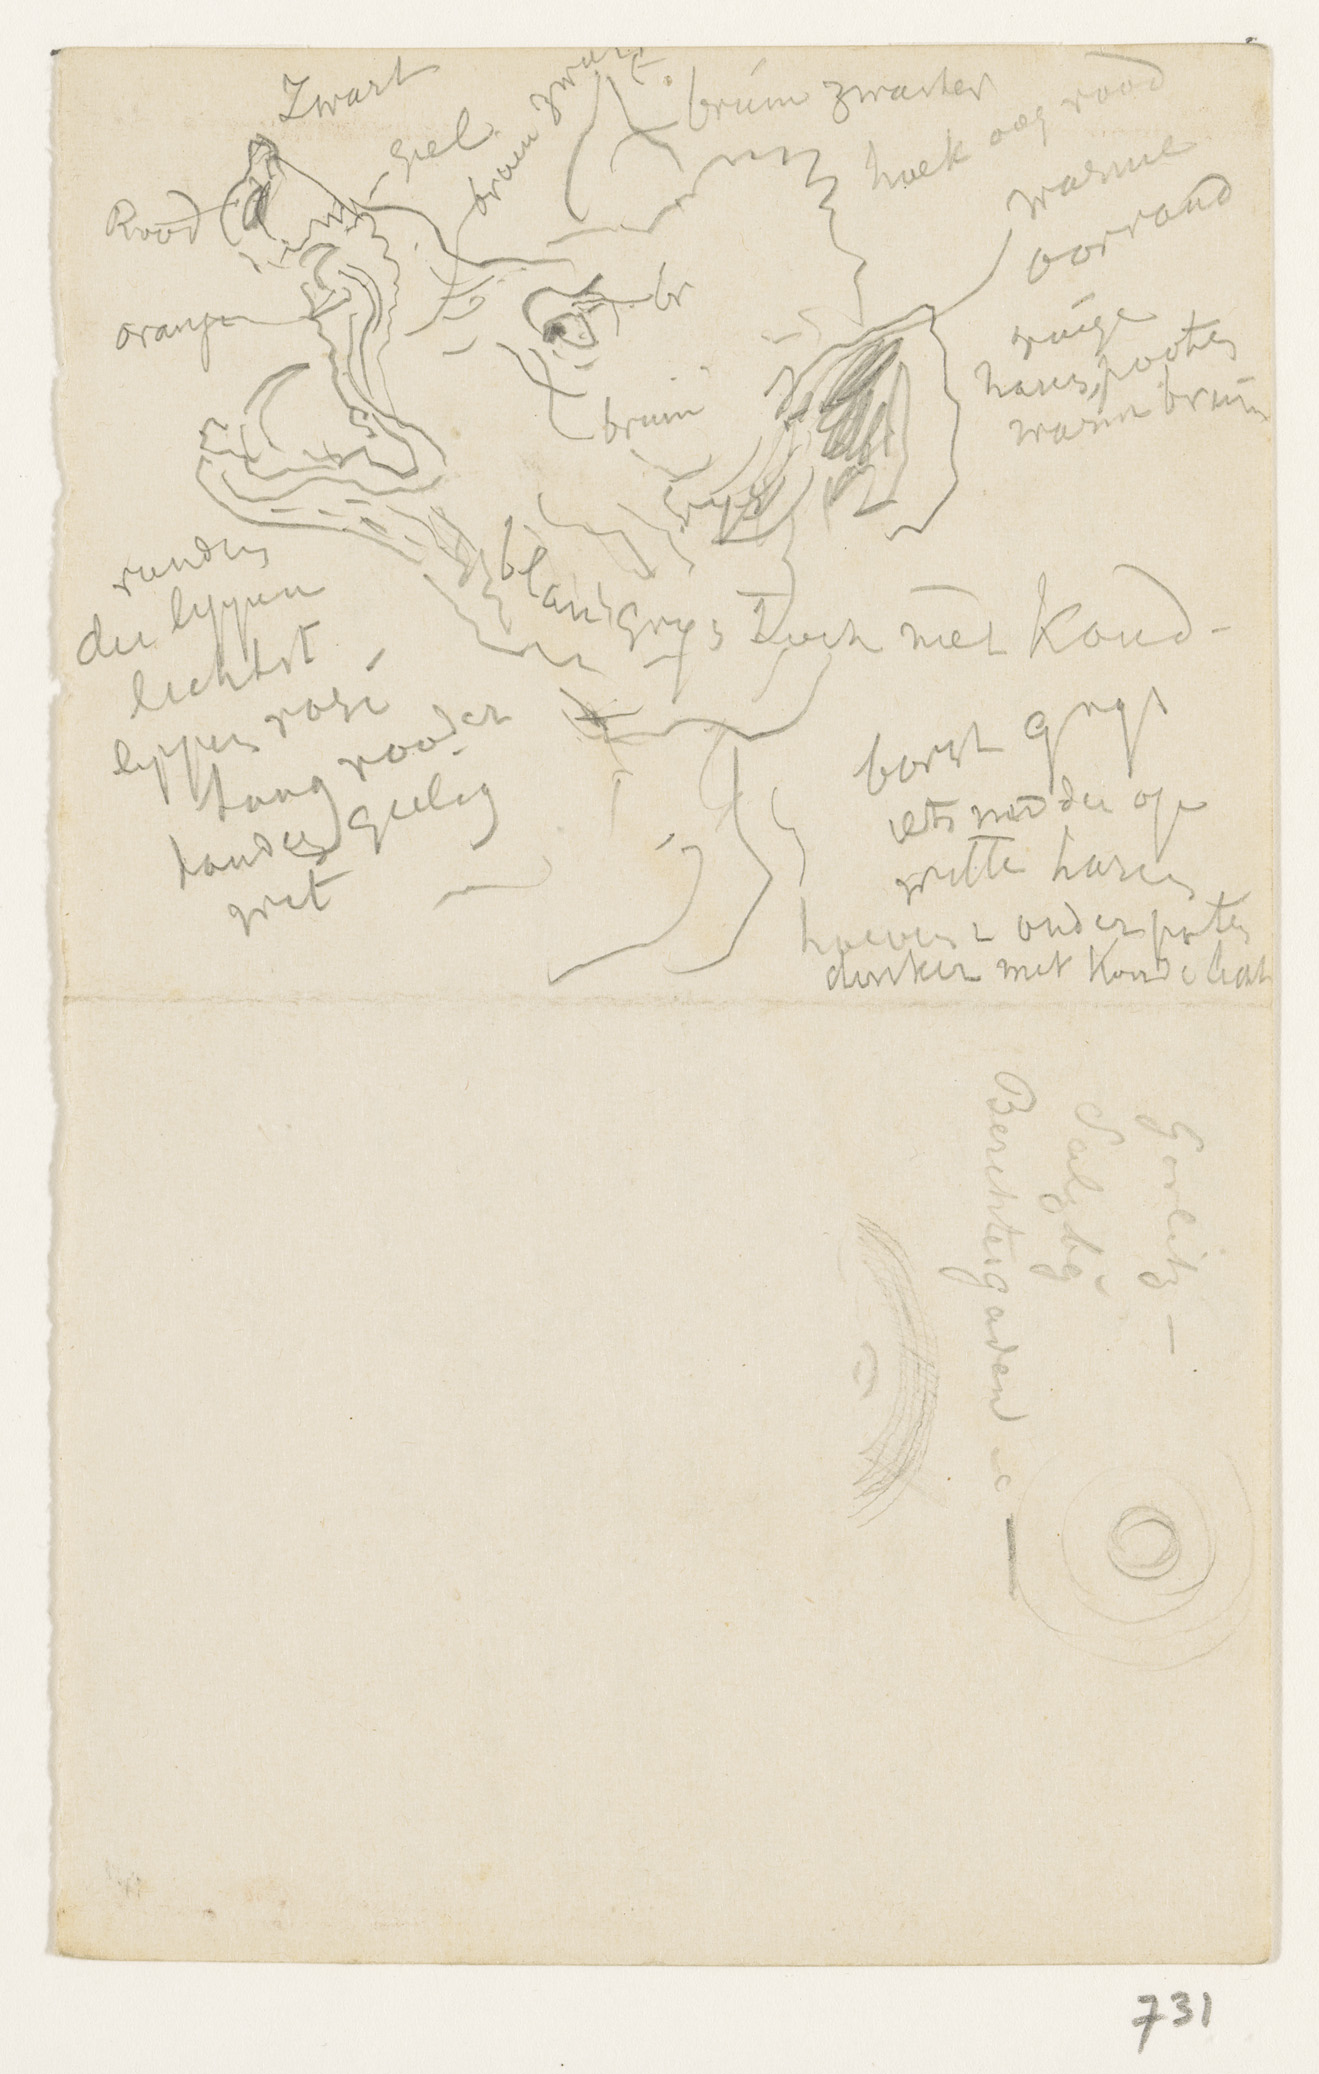 Zwart
geel
bruin zwart
bruin zwarter
hoek oog rood
Rood
warme
oorrand
oranje
br
ruige
haren, pooten
warm bruin
bruin
grijs
randen
der lippen
lichtst
lippen rosé
tong rooder
tanden geelig
wit
blauw grijs Toch met Koud-
borst grijs
iets modder op
witte haren
hoeven & onderpooten
donker met Koude licht
Gorlitz —
Salzbg
Berchtesgaden
731